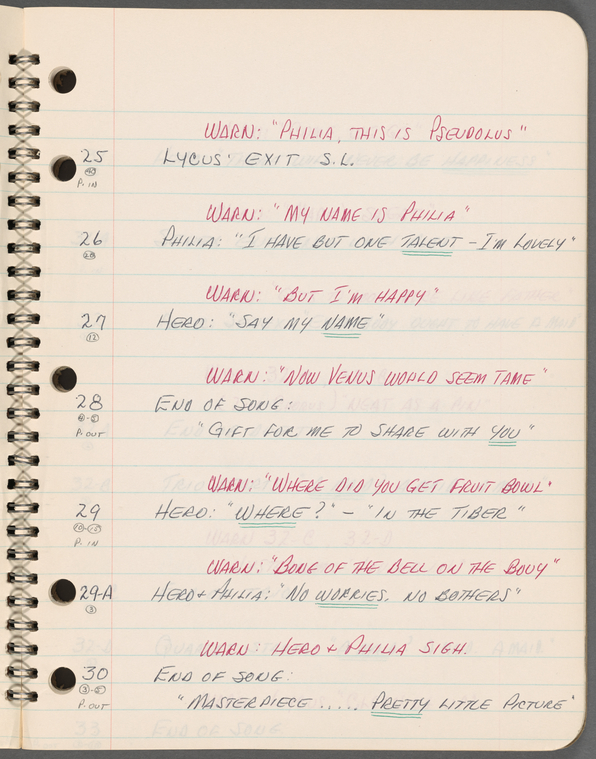 WARN: "PHILIA, THIS IS PSEUDOLUS"
25 LYCUS EXIT S.L.
P. IN
WARN: "MY NAME IS PHILIA"
26 PHILIA: "I HAVE BUT ONE TALENT - I'M LOVELY"
WARN: "BUT I'M HAPPY"
27 HERO: "SAY MY NAME"
12
WARN: "NOW VENUS WOULD SEEM TAME"
28 END OF SONG:
P. OUT "GIFT FOR ME TO SHARE WITH YOU"
WARN: "WHERE DID YOU GET FRUIT BOWL"
29 HERO: "WHERE?" - "IN THE TIBER"
P. IN
WARN: "BONG OF THE BELL ON THE BOUY"
29-A HERO + PHILIA: "NO WORRIES, NO BOTHERS"
3
WARN: HERO + PHILIA SIGH.
30 END OF SONG:
P. OUT "MASTERPIECE ..... PRETTY LITTLE PICTURE"